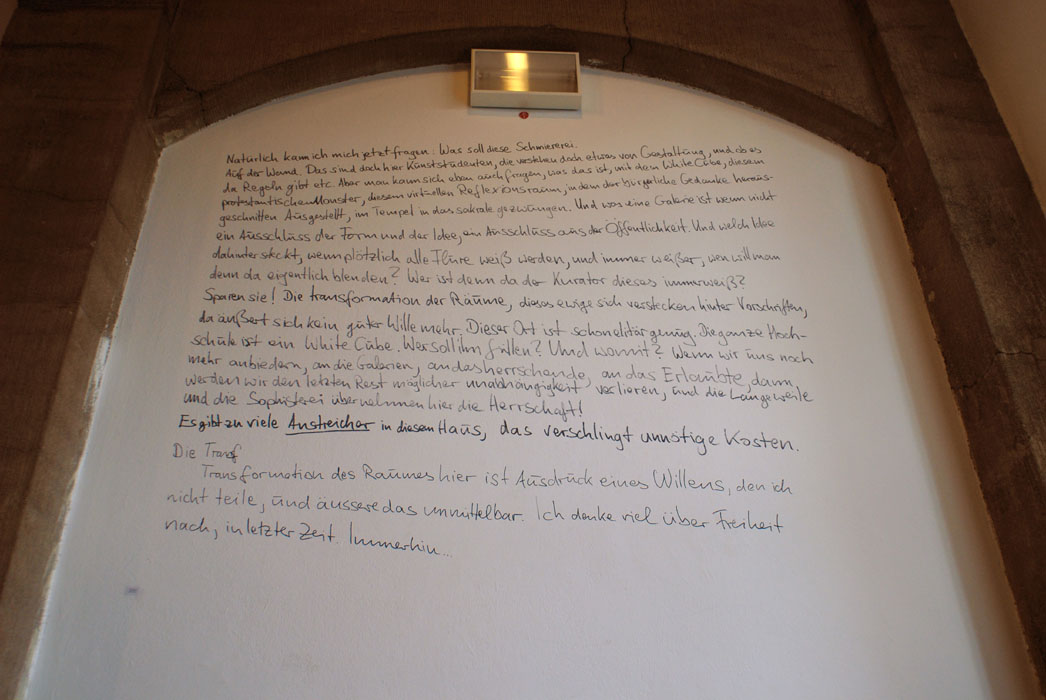 Natürlich kann ich mich jetzt fragen. Was soll diese Schmiererei.
Auf der Wand. Das sind doch hier Kunststudenten, die verstehen doch etwas von Gestaltung, und ob es
da Regeln gibt etc. Aber man kann sich eben auch fragen, was das ist, mit dem White Cube, diesem
protestantischen Monster, diesem virtuellen Reflexionsraum, in dem der bürgerliche Gedanke heraus-
geschnitten Ausgestellt, im Tempel in das sakrale gezwungen. Und was eine Galerie ist wenn nicht
ein Ausschluss der Form und der Idee, ein Ausschluss aus der Öffentlichkeit. Und welch Idee
dahinter steckt, wenn plötzlich alle Flure weiß werden, und immer weißer, wen will man
denn da eigentlich blenden? Wer ist denn da der Kurator dieses immerweiß?
Sparen sie! Die transformation der Räume, dieses ewige sich verstecken hinter Vorschriften,
da äußert sich kein guter Wille mehr. Dieser Ort ist schon elitär genug. Die ganze Hoch-
schule ist ein White Cube. Wer soll ihn füllen? Und womit? Wenn wir uns noch
mehr anbiedern, an die Galerien, an das herrschende, an das Erlaubte, dann
werden wir den letzten Rest möglicher unabhängigkeit verlieren, und die Langeweile
und die Sophisterei übernehmen hier die Herrschaft!
Es gibt zu viele Anstreicher in diesem Haus, das verschlingt unnötige Kosten.
Die Transf
Transformation des Raumes hier ist Ausdruck eines Willens, den ich
nicht teile, und äussere das unmittelbar. Ich denke viel über Freiheit
nach, in letzter Zeit. Immerhin...